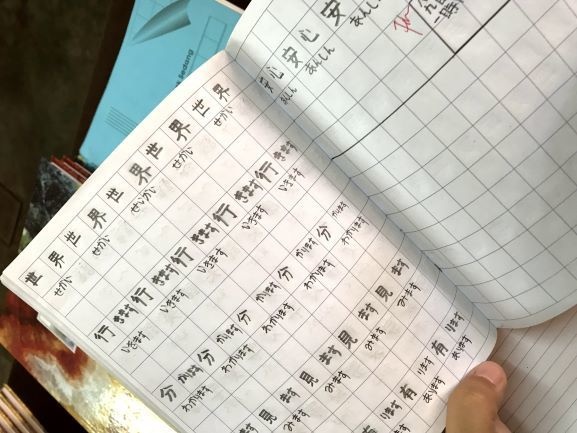 世界世界世界世界世界
せかい せかい せいかい せかい せかい
行きます行きます行きます行きます行きます
いきます いきます いきます いきます いきます
分かります分かります分かります分かります分かります
わかります わかります わかります わかります わかります
見ます見ます見ます見ます
みます みます みます みます
有ります有ります有ります
あります あります
心安心安
あんしん あんしん